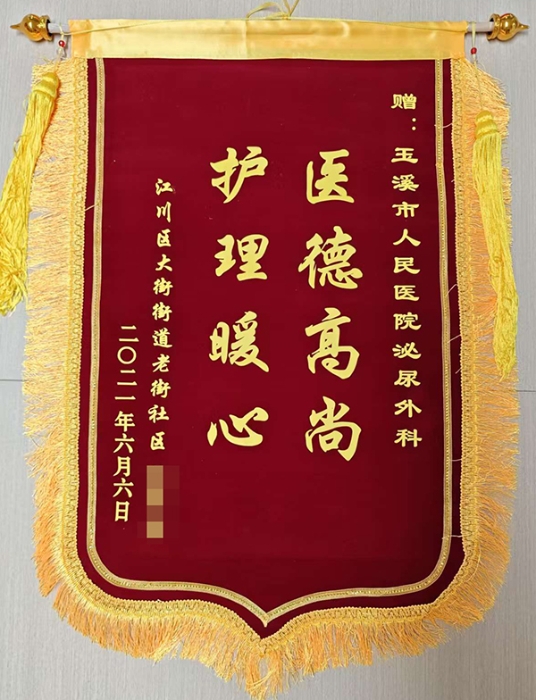 赠：玉溪市人民医院泌尿外科
医德高尚
护理暖心
江川区大街街道老街社区
二〇二一年六月六日